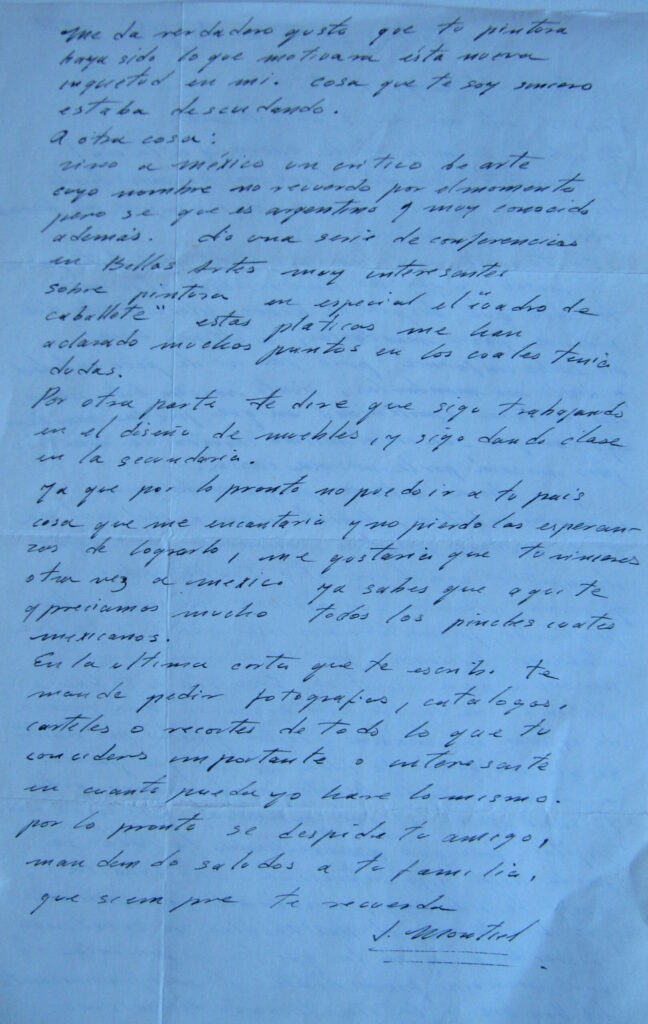 me da verdadero gusto que tu pintura
haya sido lo que motivara esta nueva
inquietud en mi. cosa que te soy sincero
estaba descuidando.
A otra cosa:
vino a méxico un critico de arte
cuyo nombre no recuerdo por el momento
pero se que es argentino y muy conocido
además. dio una serie de conferencias
en Bellas Artes muy interesantes
sobre pintura en especial el "cuadro de
caballete" estas platicas me han
aclarado muchos puntos en los cuales tenia
dudas.
Por otra parte te dire que sigo trabajando
en el diseño de muebles, y sigo dando clase
en la secundaria.
ya que por lo pronto no puedo ir a tu pais
cosa que me encantaria y no pierdo las esperan-
zas de lograrlo, me gustaria que tu vinieras
otra vez a mexico ya sabes que aqui te
apreciamos mucho todos los pinches cuates
mexicanos.
En la ultima carta que te escribi te
mande pedir fotografias, catalogos,
carteles o recortes de todo lo que tu
concideres importante o interesante
en cuanto pueda yo hare lo mismo.
por lo pronto se despide tu amigo,
mandando saludos a tu familia,
que siempre te recuerda
J. Montiel